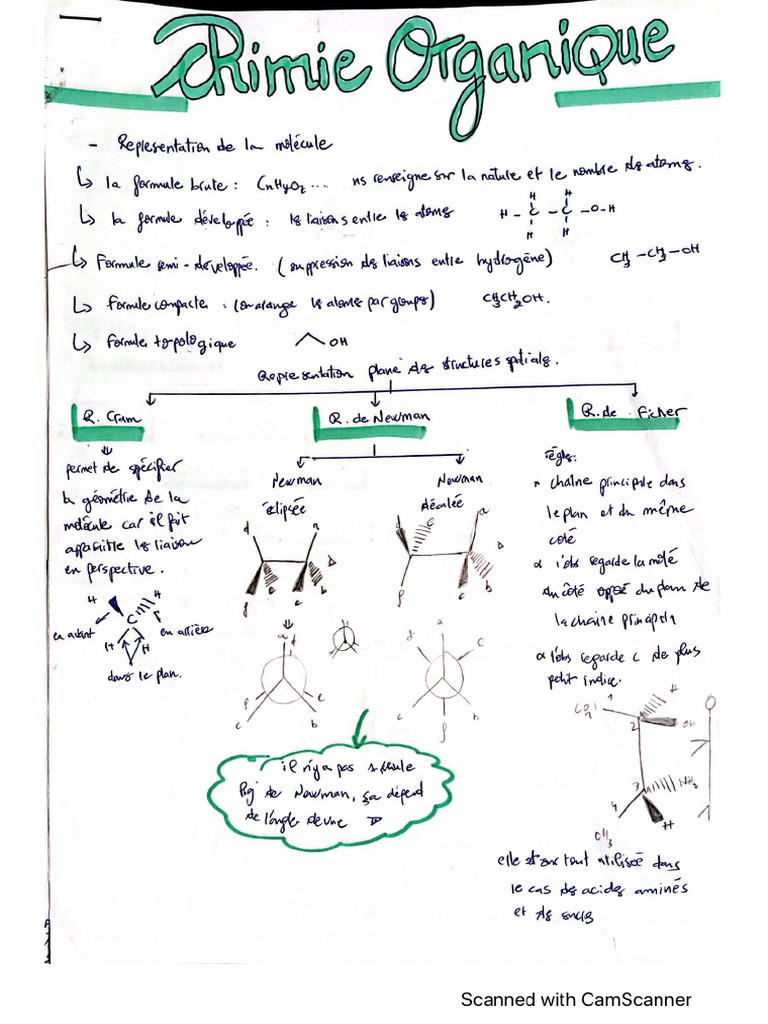 Chimie Organique
- Representation de la molécule
↳ la formule brute : CnHyO2 ... ns renseigne sur la nature et le nombre ds atoms.
↳ la formule développée : ls liaisons entre ls atoms
H - C - C - O - H
H H
H H
↳ Formule semi-développée. (suppression ds liaisons entre hydrogène) CH3 - CH2 - OH
↳ Formule compacte : (on arange ls atoms par groups) CH3CH2OH.
↳ Formule topologique OH
Representation plane ds structures spatials.
R. Cram
R. de Newman
R. de Ficher
permet de spécifier
la géométrie de la
molécule car il fait
apparaitre ls liaison
en perspective.
H H
C
en avant en arrière
H H
dans le plan.
Newman
éclipsée
Newman
décalée
d a
b
f e c
a
b
c
f
a d
f e
c b
a
c
b
f
il n'y a pas 1 seule
Proj de Newman, ça dépend
de l'angle de vue
règles:
chaîne principale dans
le plan et du même
coté
l'obs regarde la molé
du côté opposé du plan de
la chaine principale
l'obs regarde C de plus
petit indice.
1 H
2 OH
3 NH2
4 H
CH3
elle est surtout utilisée dans
le cas ds acides aminés
et ds sucrs
Scanned with CamScanner